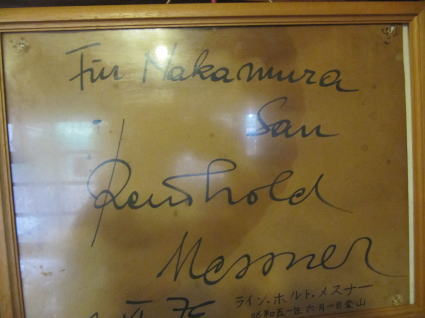 Für Nakamura
San
Reinhold
Messner
ライン.ホルト.メスナー
昭和五一年六月一日登山